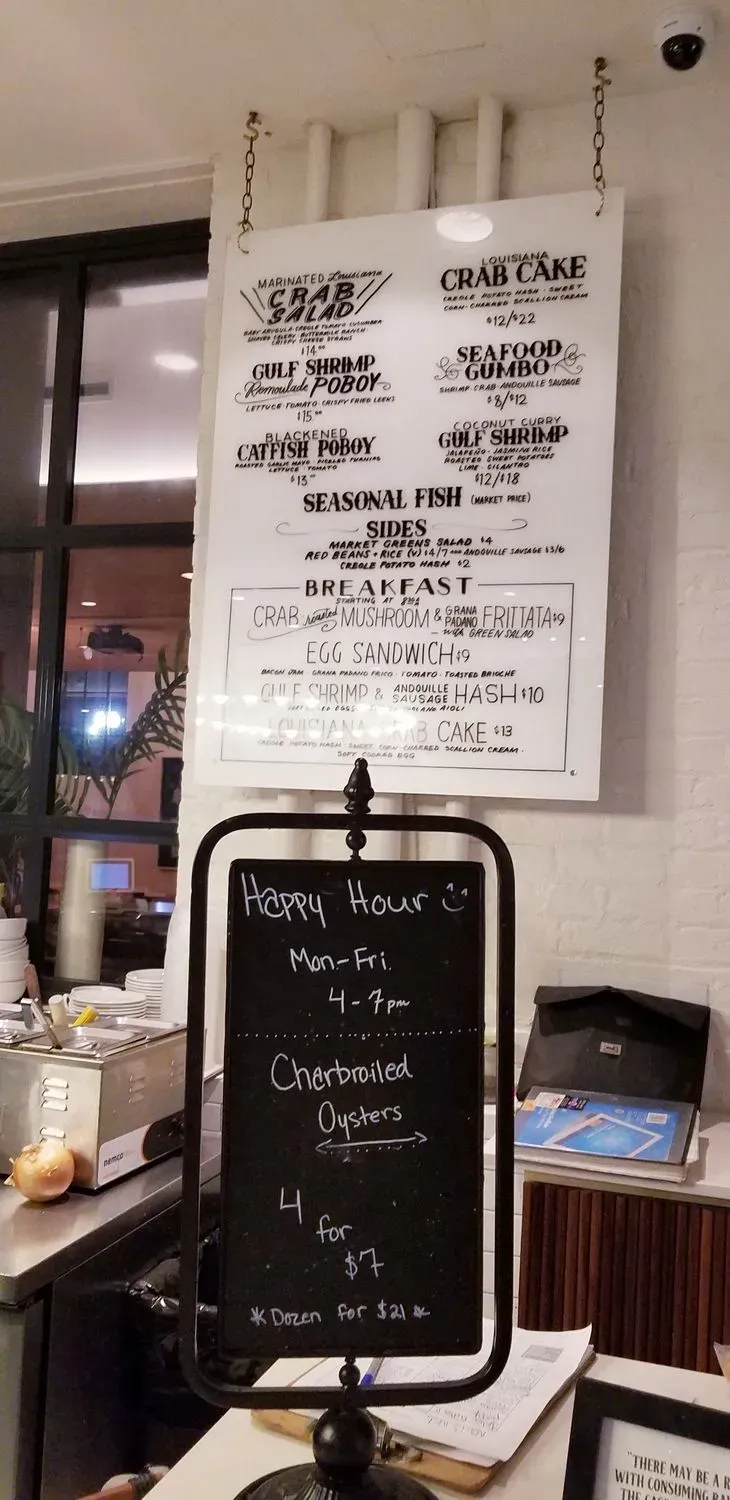 MARINATED Louisiana
CRAB
SALAD
BABY ARUGULA · CREOLE TOMATO · CUCUMBER
SHAVED CELERY · BUTTERMILK RANCH
CRISPY CHEESE STRAWS
$14.00
GULF SHRIMP
Remoulade POBOY
LETTUCE · TOMATO · CRISPY FRIED LEEKS
$15.00
BLACKENED
CATFISH POBOY
ROASTED GARLIC MAYO · PICKLED TURNIPS
LETTUCE TOMATO
$13.00
LOUISIANA
CRAB CAKE
CREOLE POTATO HASH · SWEET
CORN · CHARRED SCALLION CREAM
$12/$22
SEAFOOD
GUMBO
SHRIMP · CRAB · ANDOUILLE SAUSAGE
$8/$12
COCONUT CURRY
GULF SHRIMP
JALAPEÑO · JASMINE RICE
ROASTED SWEET POTATOES
LIME · CILANTRO
$12/$18
SEASONAL FISH (MARKET PRICE)
SIDES
MARKET GREENS SALAD $4
RED BEANS + RICE (V) $4/7 ANDOUILLE SAUSAGE $3/6
CREOLE POTATO HASH $2
BREAKFAST
STARTING AT
CRAB roasted MUSHROOM & GRANA PADANO FRITTATA $9
with GREEN SALAD
EGG SANDWICH $9
BACON JAM · GRANA PADANO FRICO · TOMATO · TOASTED BRIOCHE
GULF SHRIMP & ANDOUILLE SAUSAGE HASH $10
AIOLI
LOUISIANA CRAB CAKE $13
CREOLE POTATO HASH · SWEET CORN · CHARRED SCALLION CREAM ·
SOFT COOKED EGG
Happy Hour
Mon-Fri.
4-7pm
Charbroiled
Oysters
4
for
$7
* Dozen for $21 *
nemco
"THERE MAY BE A R
WITH CONSUMING RA